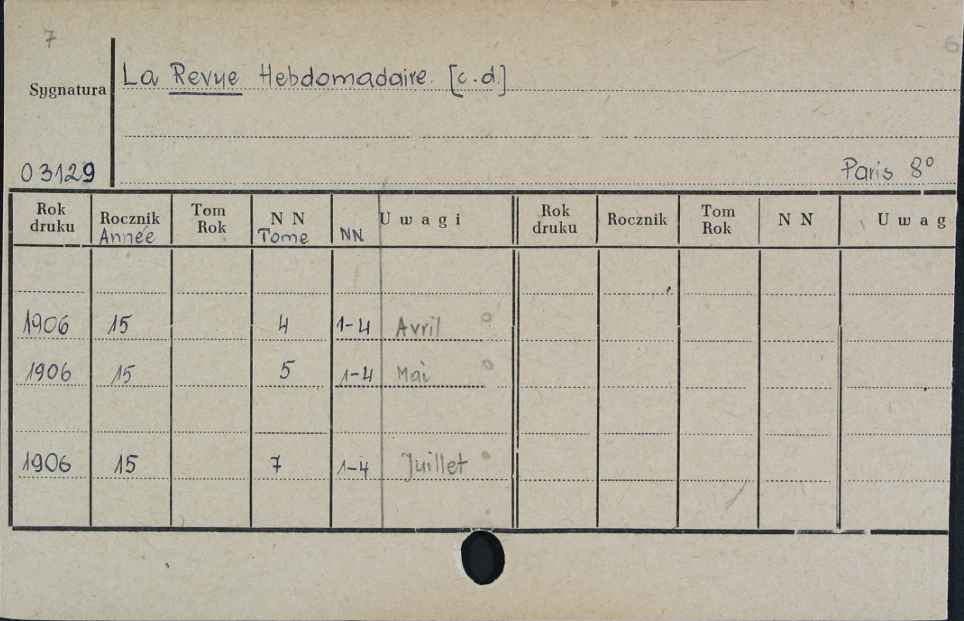 7 6
La Revue Hebdomadaire. [c.d.]
Sygnatura
03129 Paris 8°
Rok druku Rocznik Tom Rok N N U w a g i Rok druku Rocznik Tom Rok N N U w a g
Année Tome NN
1906 15 4 1-4 Avril °
1906 15 5 1-4 Mai °
1906 15 7 1-4 Juillet °